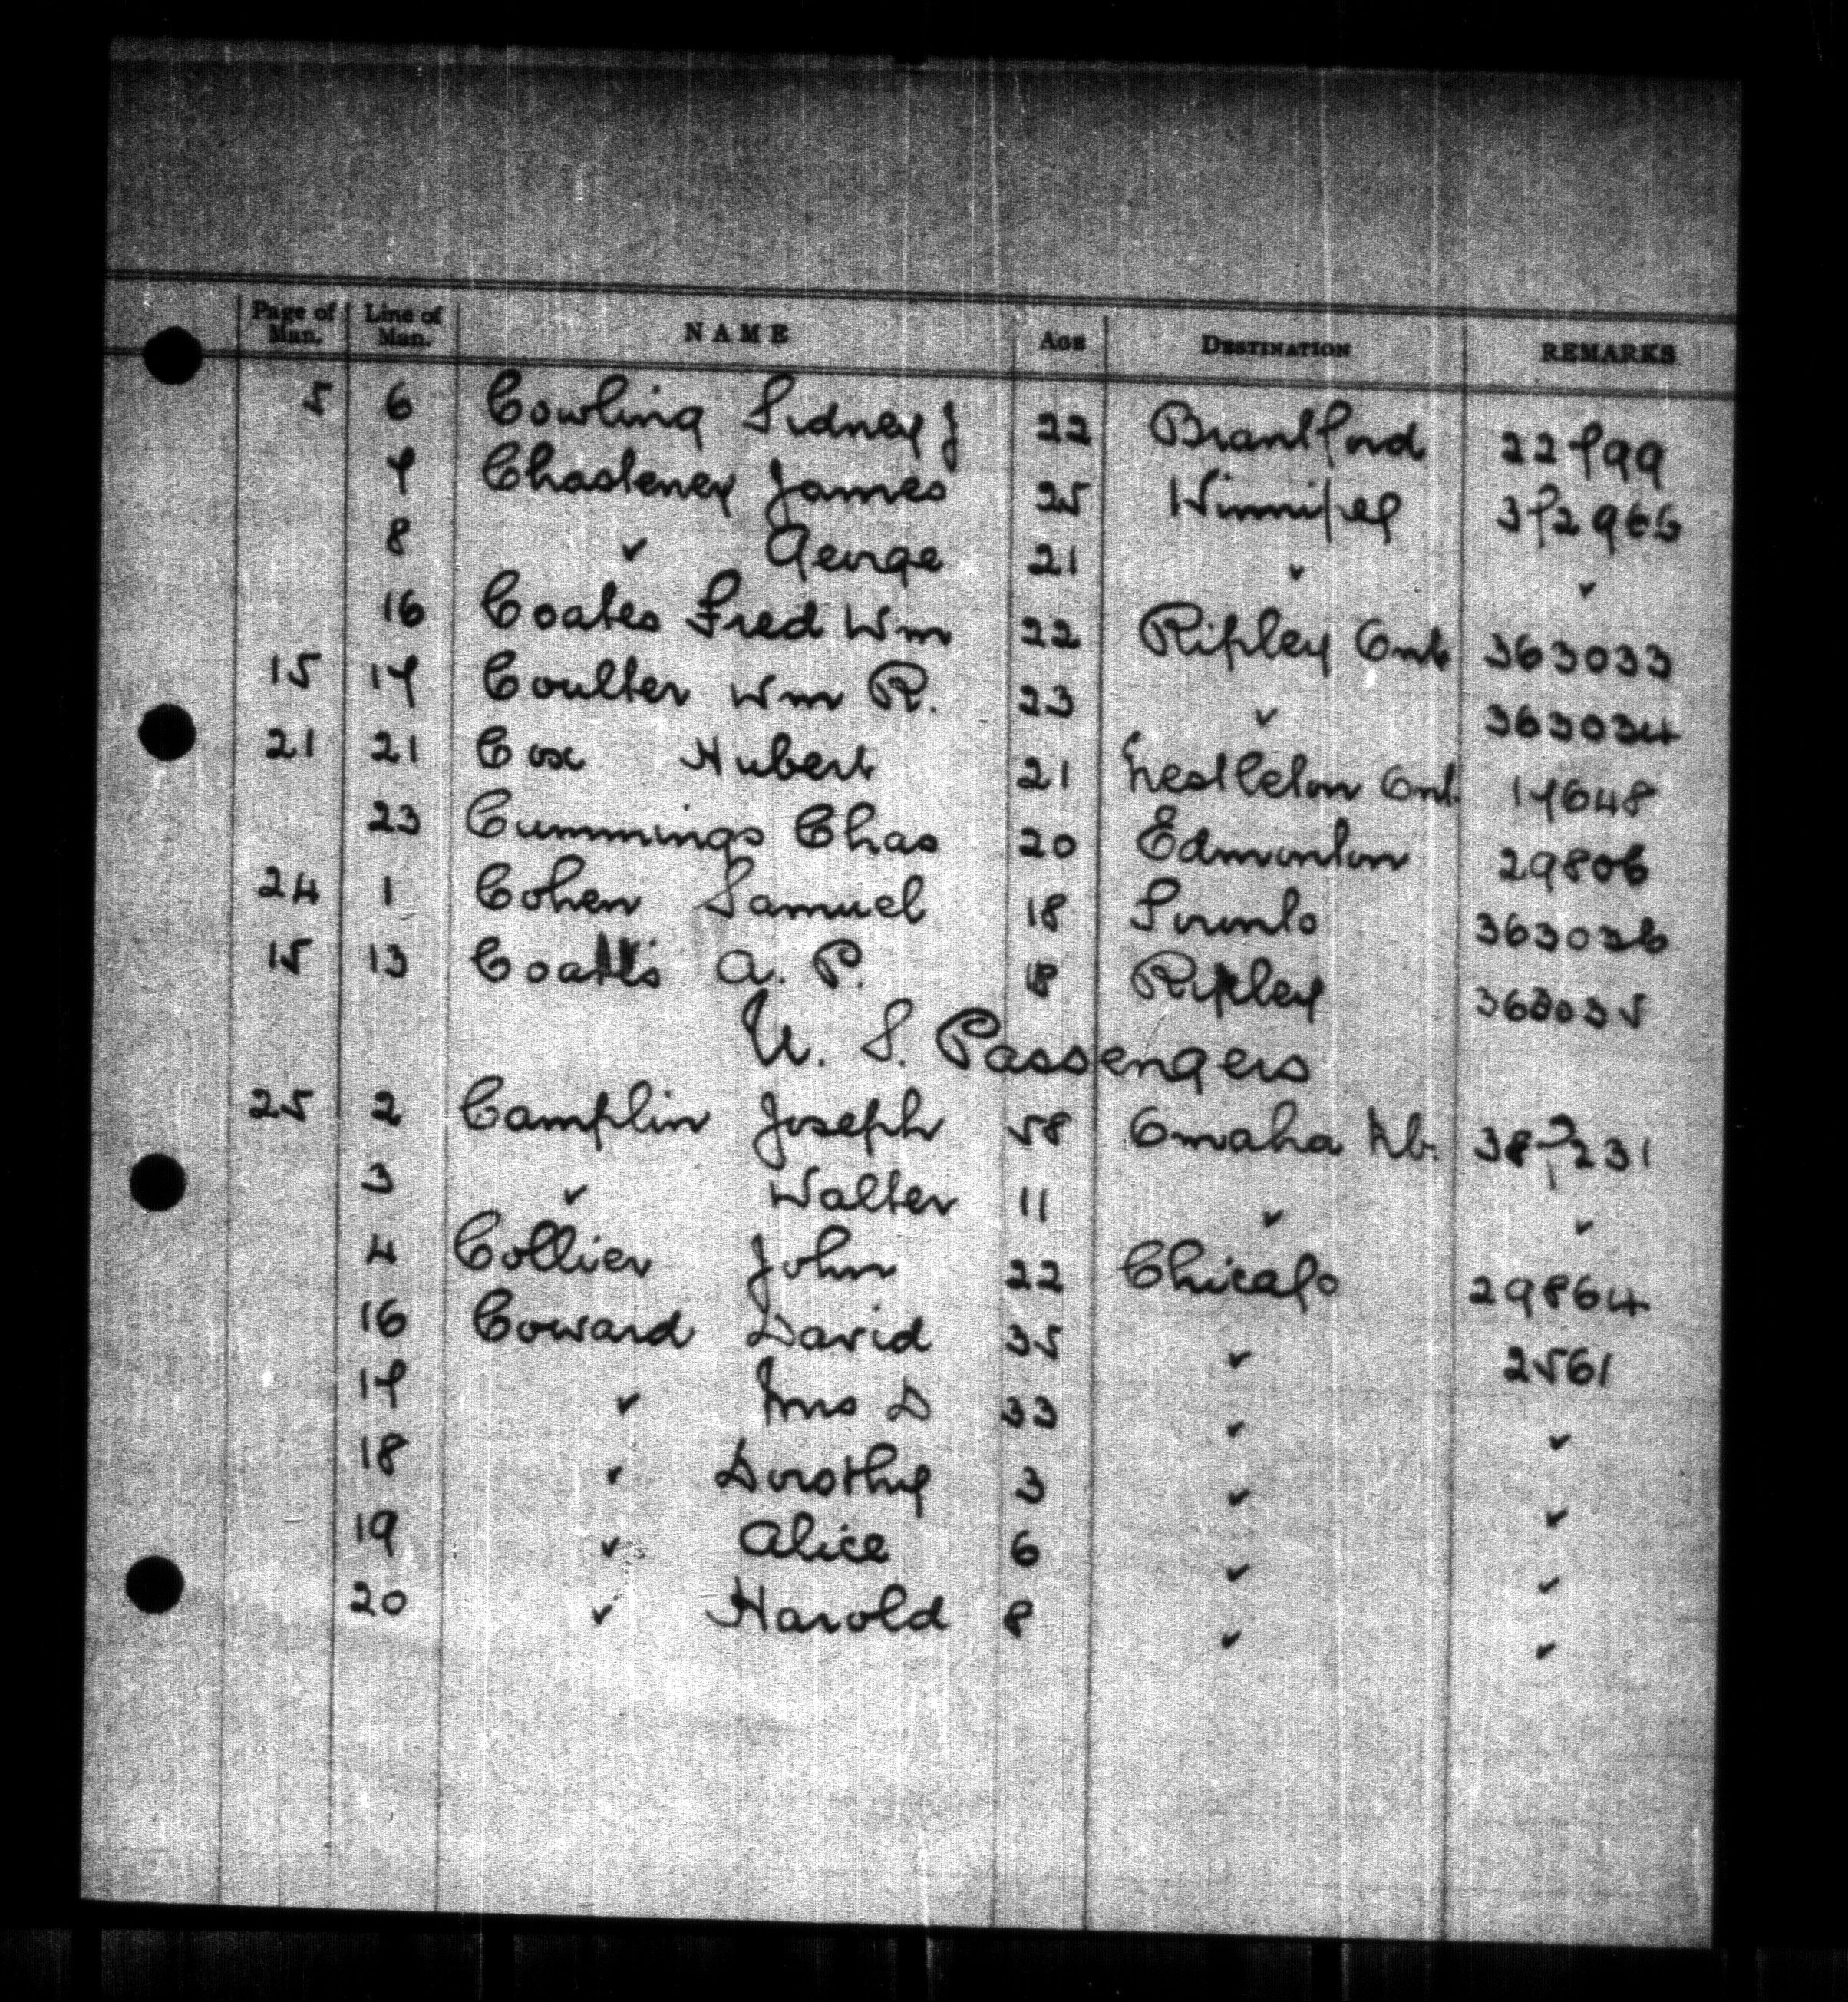 Page of Man. Line of Man. NAME AGE DESTINATION REMARKS
5 6 Cowling Sidney J 22 Brantford 22799
7 Chasteney James 25 Winnipeg 372966
8 " George 21 " "
16 Coates Fred Wm 22 Ripley Ont 363033
15 17 Coulter Wm R. 23 " 363034
21 21 Cox Hubert 21 Nestleton Ont. 17648
23 Cummings Chas 20 Edmonton 29806
24 1 Cohen Samuel 18 Toronto 363036
15 13 Coatts A. P. 18 Ripley 363035
U. S. Passengers
25 2 Camplin Joseph 58 Omaha Nb. 387231
3 " Walter 11 " "
4 Collier John 22 Chicago 29864
16 Coward David 35 " 2561
17 " Mrs D 33 " "
18 " Dorothy 3 " "
19 " Alice 6 " "
20 " Harold 8 " "